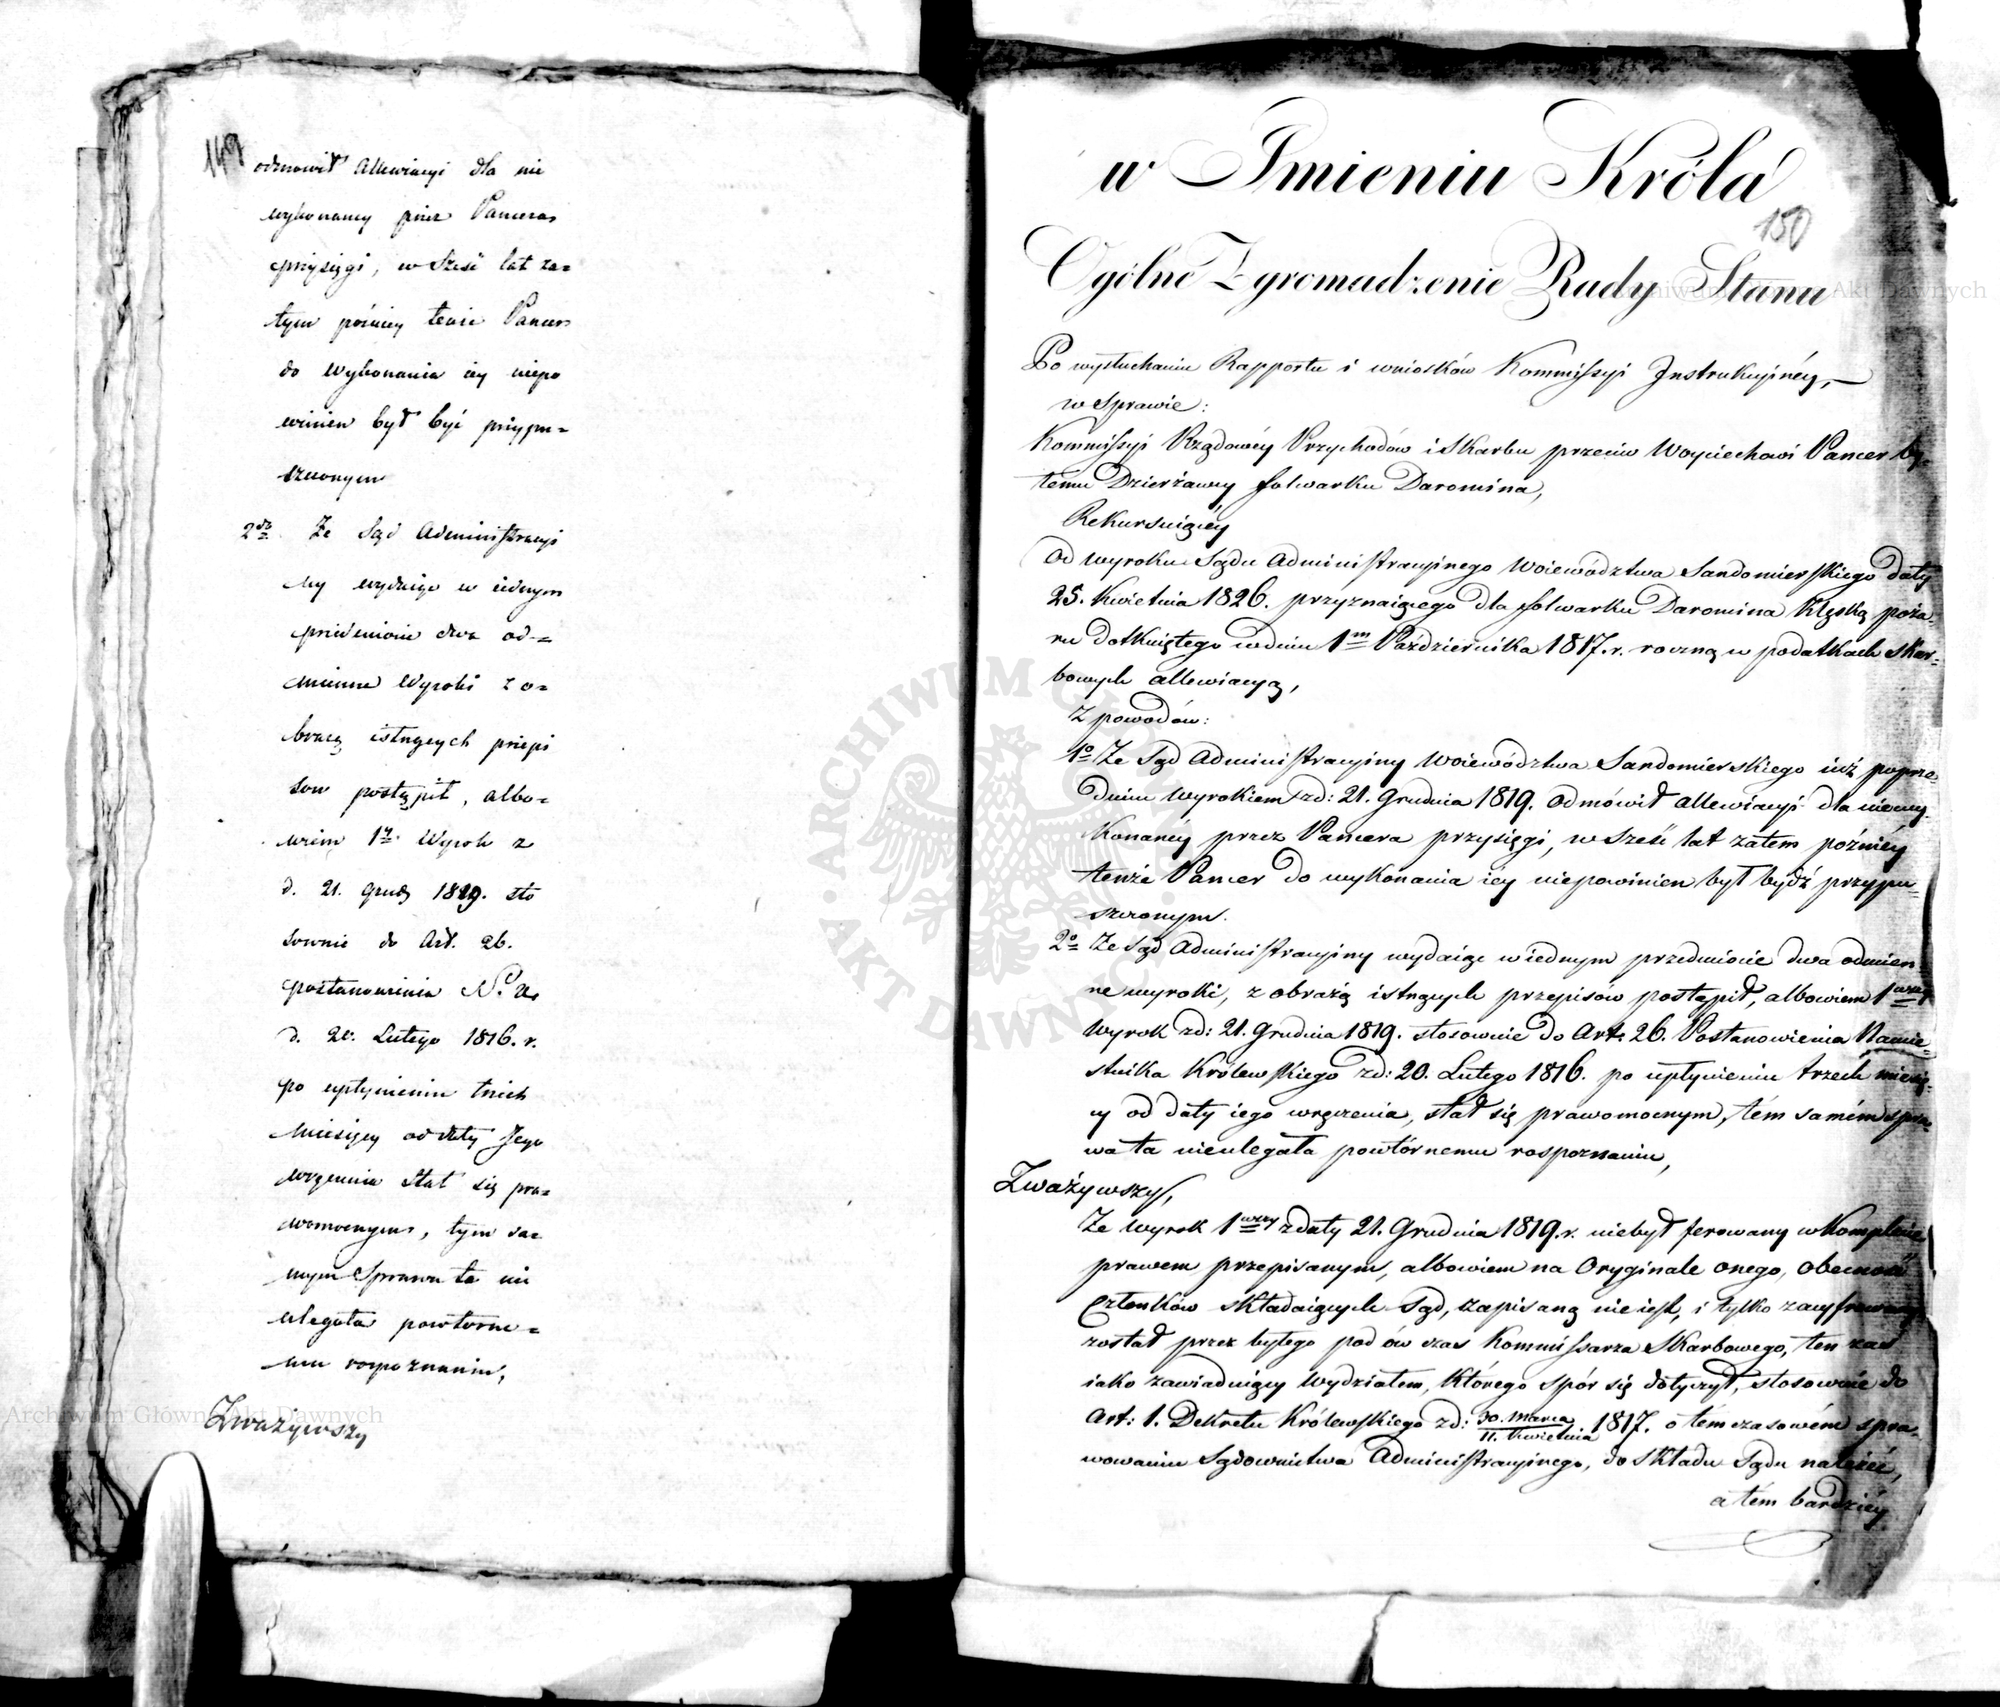 149
odmowił Allewiacyi dla nie
wykonaney przez Pancera
przysięgi, w sześć lat za=
tym poźniey tenże Pancer
do wykonania iey niepo
winien był być przypu=
szczonym
2do Że Sąd Administracyi
ny wydaiąc w iednym
przedmiocie dwa od=
mienne Wyroki z o=
brazą istnących przepi
sow postąpił, albo=
wiem 1y Wyrok z
d. 21. Grud 1819. sto
sownie do Art. 26.
postanowienia
d. 20. Lutego 1816. r.
po upłynieniu trzech
Miesięcy od daty Jego
wręczenia stał się pra=
womocnym, tym sa=
mym Sprawa ta nie
ulegała powtorne=
mu rozpoznaniu,
Zważywszy
w Imieniu Króla
150
Ogólne Zgromadzenie Rady Stanu
Po wysłuchaniu Rapportu i wniosków Kommissyi Instrukcyinéy,
w Sprawie:
Kommissyi Rządowéy Przychodów i Skarbu przeciw Woyciechowi Pancer by=
łemu Dzierżawcy folwarku Daromina,
Rekursuiącéy
od wyroku Sądu Administracyinego Woiewództwa Sandomierskiego daty
25. Kwietnia 1826. przyznaiącego dla folwarku Daromina klęską poża=
ru dotkniętego w dniu 1m Października 1817. r. roczną w podatkach Skar=
bowych allewiacyą,
z powodów:
1o Że Sąd Administracyiny Woiewództwa Sandomierskiego iuż poprze=
dnim Wyrokiem z d: 21. Grudnia 1819. odmówił allewiacyi dla niewy=
konanéy przez Pancera przysięgi, w sześć lat zatem poźniéy
tenże Pancer do wykonania iéy niepowinien był bydź przypu=
szczonym.
2o Że Sąd Administracyiny wydaiąc w iednym przedmiocie dwa odmien
ne wyroki, z obrazą istnących przepisów postąpił, albowiem 1wszy
Wyrok z d: 21. Grudnia 1819. stosownie do Art: 26. Postanowienia Namie=
stnika Królewskiego z d: 20. Lutego 1816. po upłynieniu trzech miesię=
cy od daty iego wręczenia, stał się prawomocnym, tém samém spra=
wa ta nieulegała powtórnemu rospoznaniu,
Zważywszy,
Że wyrok 1wszy z daty 21. Grudnia 1819. r. niebył ferowany w Komplecie
prawem przepisanym, albowiem na Oryginale onego, obecność
Członków składaiących Sąd, zapisaną nie iest, i tylko zacyfrowany
został przez byłego pod ów czas Kommissarza Skarbowego, ten zaś
iako zawiaduiący Wydziałem, którego spór się dotyczył, stosownie do
Art: 1. Dekretu Królewskiego z d: 30. Marca / 11. Kwietnia 1817. o tém czasowém spra=
wowaniu Sądownictwa Administracyinego, do składu Sądu należéć,
a tém bardziéy
Archiwum Główne Akt Dawnych